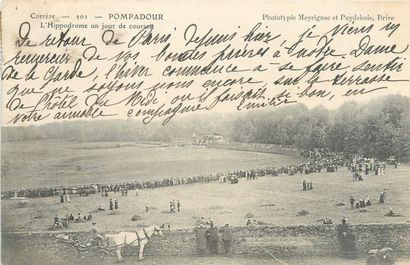 Corrèze — 201 - POMPADOUR
L'Hippodrome un jour de courses
Phototypie Meyrignac et Puydebois, Brive
De retour de Paris depuis hier, je viens vs
remercier de vos bonnes prières à Notre Dame
de la Garde, l'hiver commence à se faire sentir
que ne soyons nous encore sur la terrasse
de l'hôtel du Midi, où il faisait si bon, en
votre aimable compagnie Émilie